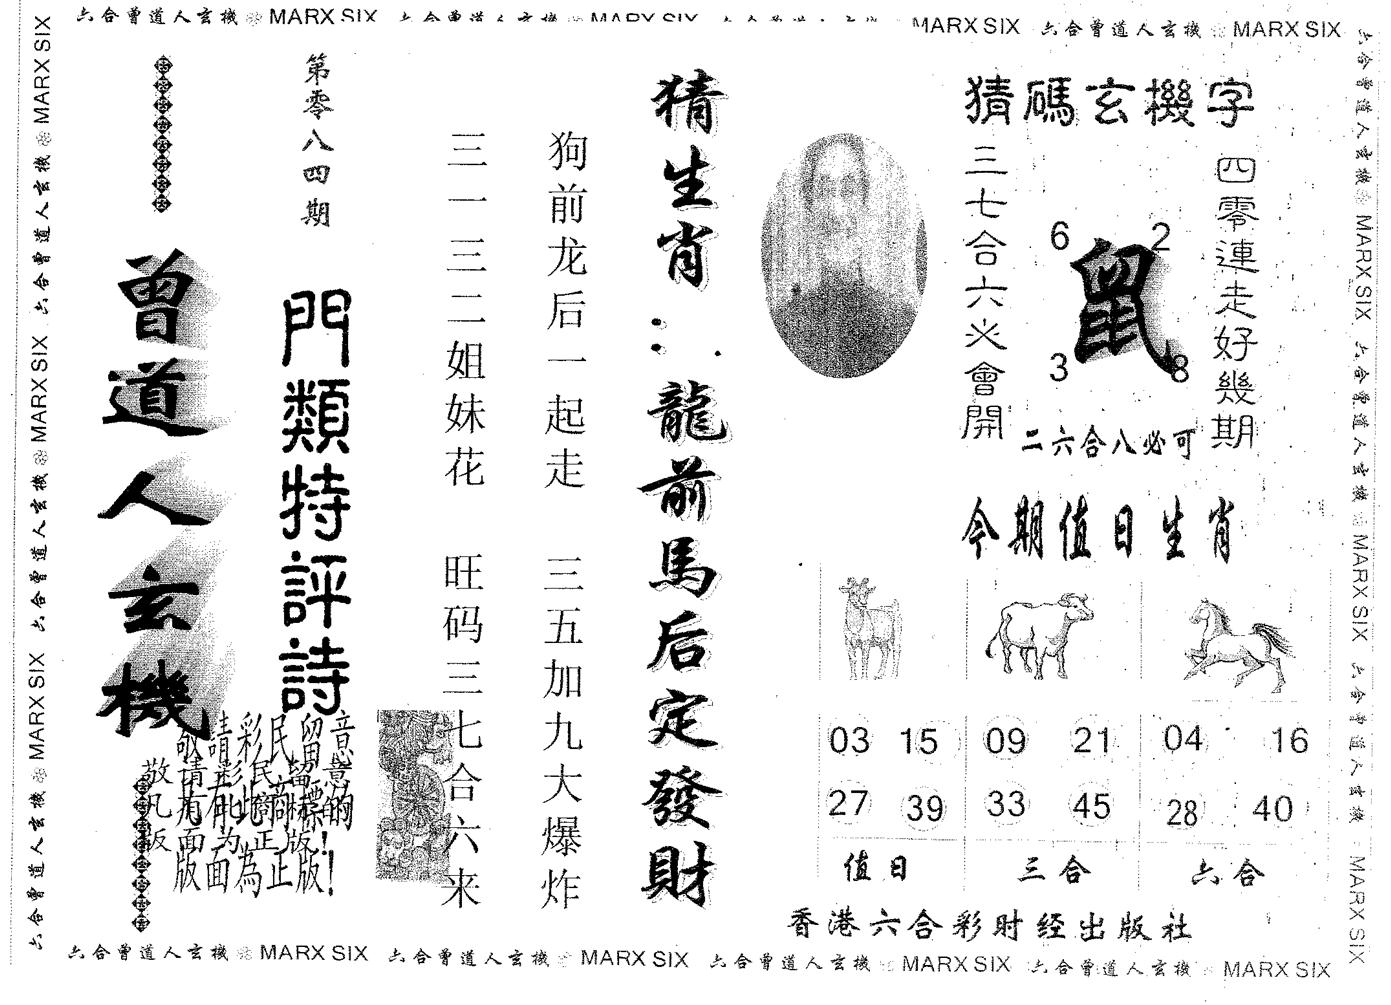 六合曾道人玄機 MARX SIX 六合曾道人玄機 MARX SIX 六合曾道人玄機 MARX SIX 六合曾道人玄機 MARX SIX
六合曾道人玄機 MARX SIX 六合曾道人玄機 MARX SIX 六合曾道人玄機 MARX SIX
曾道人玄機
第零八四期
門類特評詩
敬請彩民留意
凡有此商標的
版面為正版!
敬请彩民留意
凡有此商标的
版面为正版!
三一三二姐妹花 旺码三七合六来
狗前龙后一起走 三五加九大爆炸
猜生肖:龍前馬后定發財
猜碼玄機字
三七合六必會開
6 2
鼠
3 8
四零連走好幾期
二六合八必可
今期值日生肖
03 15 09 21 04 16
27 39 33 45 28 40
值日 三合 六合
香港六合彩財经出版社
六合曾道人玄機 MARX SIX 六合曾道人玄機 MARX SIX 六合曾道人玄機 MARX SIX 六合曾道人玄機 MARX SIX
六合曾道人玄機 MARX SIX 六合曾道人玄機 MARX SIX 六合曾道人玄機 MARX SIX